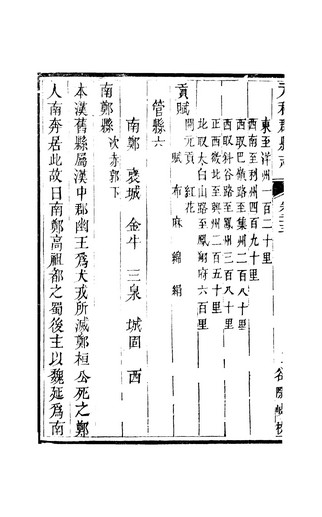 元和郡縣
東至洋州一百二十里
西南至利州四百九十里
西取巴嶺路至集州二百八十里
西取斜谷路至鳳州三百八十里
正西微北至興州二百五十里
北取太白山路至鳳翔府六百里
貢賦
開元貢 紅花
賦 布 麻 綿 絹
管縣六
南鄭 襃城 金牛 三泉 城固 西
南鄭縣 次赤郭下
本漢舊縣屬漢中郡幽王爲犬戎所滅鄭桓公死之鄭
人南奔居此故曰南鄭高祖都之蜀後主以魏延爲南